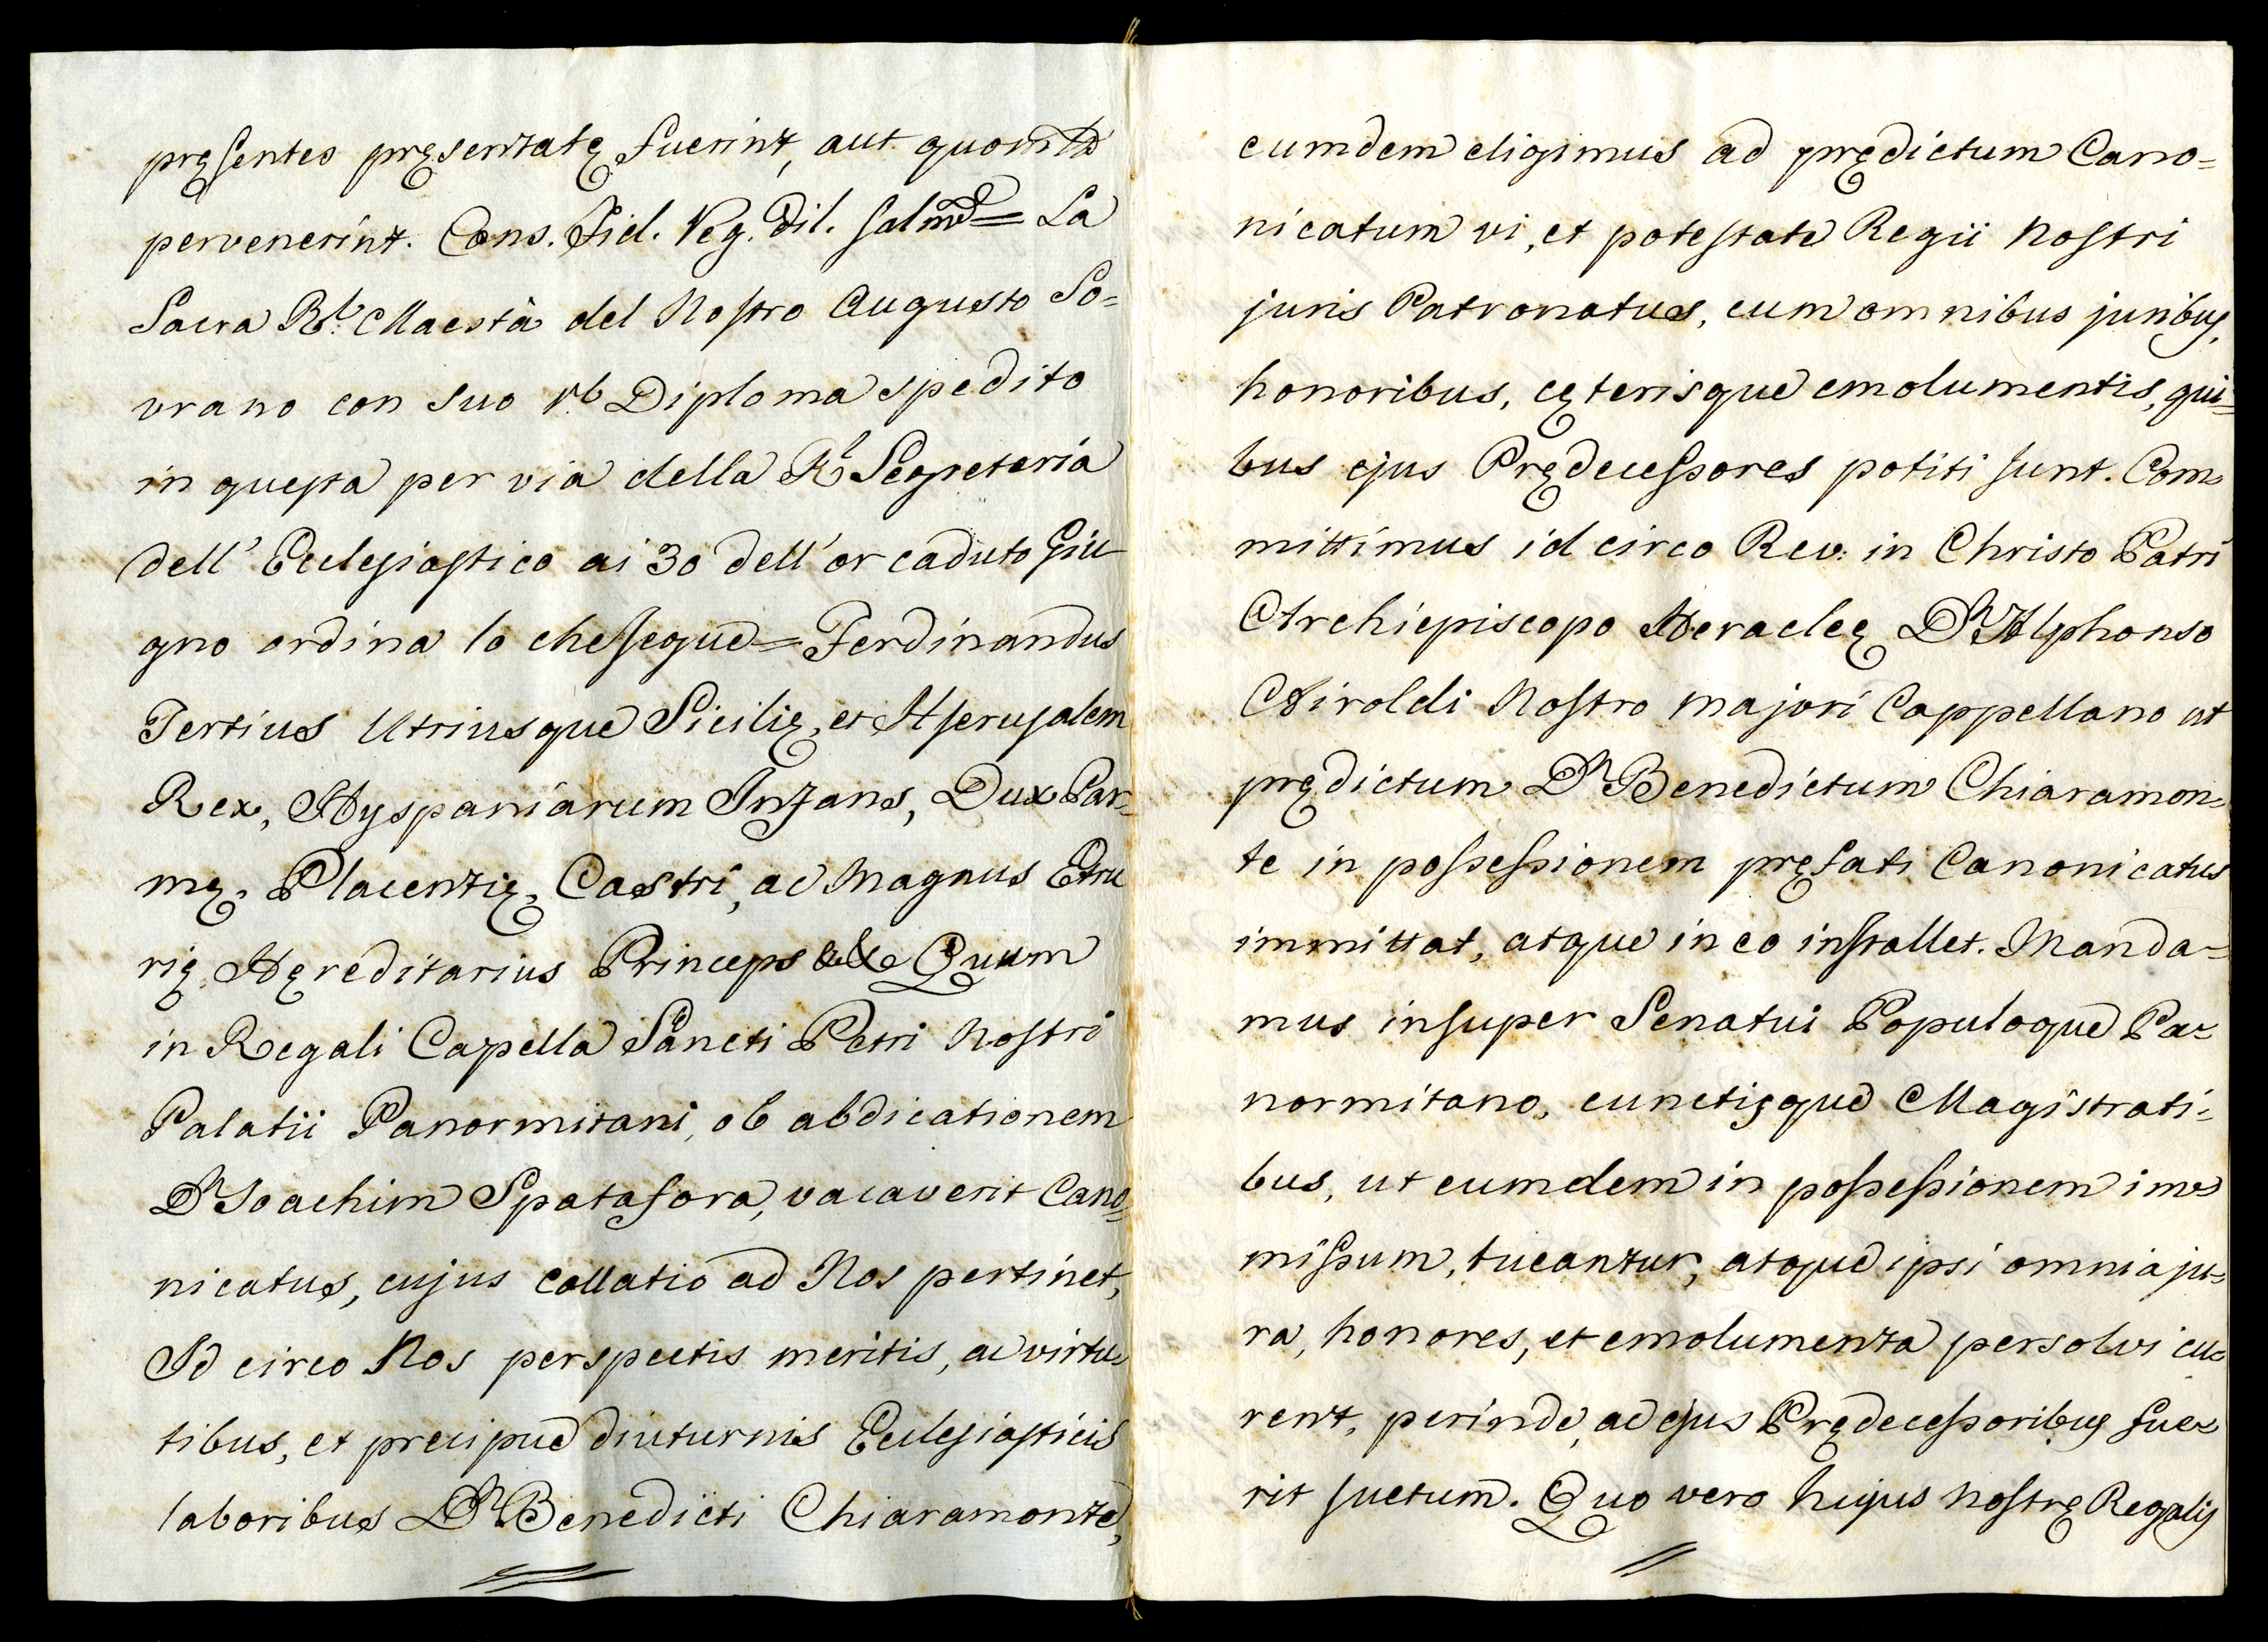 pręsentes pręsentatę fuerint, aut quomdt
pervenerint. Cons. Fid. Reg. Dil. salmd = La
Sacra Rl. Maestà del Nostro Augusto So=
vrano con suo rl Diploma spedito
in questa per via della Rl Segreteria
dell' Ecclesiastico ai 30 dell' or caduto Giu
gno ordina lo che segue = Ferdinandus
Tertius Utriusque Sicilię, et Hyerusalem
Rex, Hyspaniarum Infans, Dux Par=
mę, Placentię, Castri, ac Magnus Etru
rię Hęreditarius Princeps && Quum
in Regali Cappella Sancti Petri Nostri
Palatii Panormitani, ob abdicationem
Dn Joachim Spatafora, vacaverit Cano=
nicatus, cujus collatio ad Nos pertinet,
Id circo Nos perspectis meritis, ac virtu=
tibus, et precipue diuturnis Ecclesiasticis
laboribus Dn Benedicti Chiaramonte,
eumdem eligimus ad prędictum Cano=
nicatum vi, et potestate Regii Nostri
juris Patronatus, cum omnibus juribus,
honoribus, cęterisque emolumentis, qui=
bus ejus Prędecessores potiti sunt. Com=
mittimus id circo Rev: in Christo Patri
Archiepiscopo Heracleę Dn Alphonso
Airoldi Nostro majori Cappellano ut
prędictum Dn Benedictum Chiaramon=
te in possessionem pręfati Canonicatus
immittat, atque in eo installet. Manda=
mus insuper Senatui Populoque Pa=
normitano, cunctisque Magistrati=
bus, ut eumdem in possessionem im=
missum, tueantur, atque ipsi omnia ju=
ra, honores, et emolumenta persolvi cu=
rent, perinde, ac ejus Prędecessoribus fue=
rit suetum. Quo vero hujus nostrę Regalis